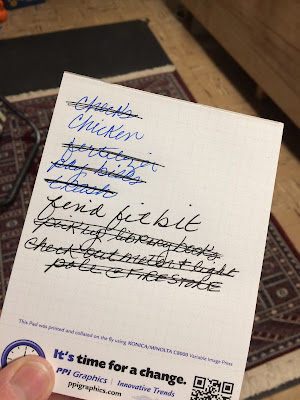 checks
chicken
fertilizer
pay bills
trash
find fitbit
pick up library books
check out motor + light
pole @ FIRESTONE
This Pad was printed and collated on the fly using KONICA/MINOLTA C8000 Variable Image Press
It's time for a change.
PPI Graphics | Innovative Trends
ppigraphics.com